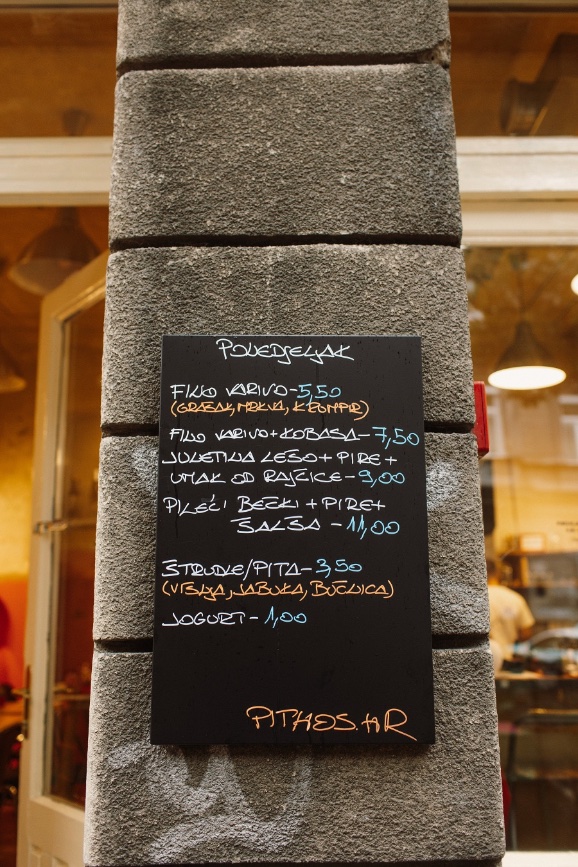 PONEDJELJAK
FINO VARIVO - 5,50
(GRAŠAK, MRKVA, KRUMPIR)
FINO VARIVO + KOBASA - 7,50
JUNETINA LEŠO + PIRE +
UMAK OD RAJČICE - 9,00
PILEĆI BEČKI + PIRE +
ŠALŠA - 11,00
ŠTRUDLE/PITA - 3,50
(VIŠNJA, JABUKA, BUČNICA)
JOGURT - 1,00
PITHOS.HR